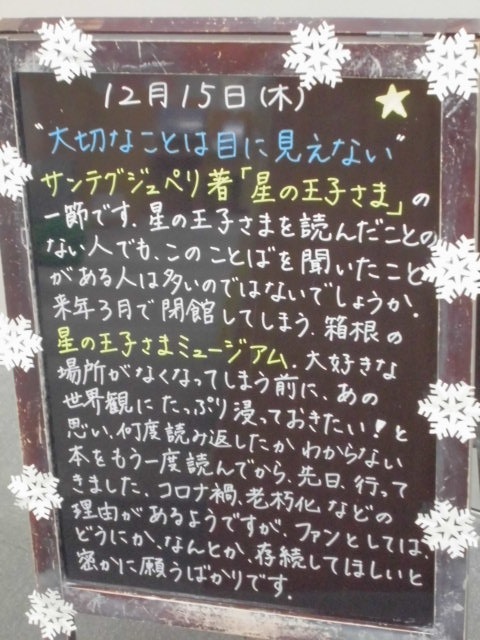 12月15日(木)
"大切なことは目に見えない"
サンテグジュペリ著「星の王子さま」の
一節です.星の王子さまを読んだことの
ない人でも、このことばを聞いたこと
がある人は多いのではないでしょうか.
来年3月で閉館してしまう、箱根の
星の王子さまミュージアム.大好きな
場所がなくなってしまう前に、あの
世界観にたっぷり浸っておきたい!と
思い、何度読み返したかわからない
本をもう一度読んでから、先日、行って
きました、コロナ禍、老朽化などの
理由があるようですが、ファンとしては、
どうにか、なんとか、存続してほしいと
密かに願うばかりです.